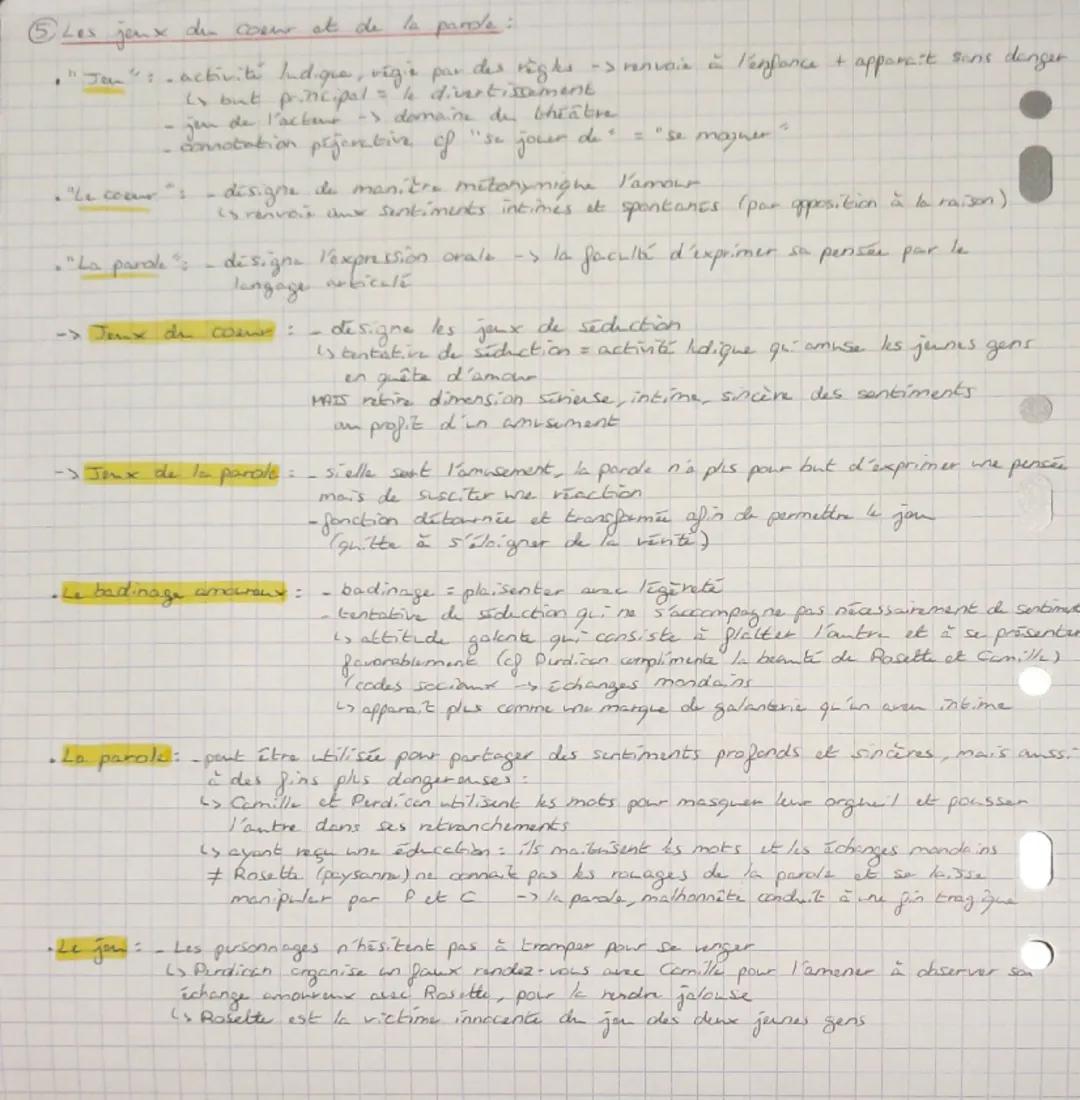 ⑤ Les jeux du coeur et de la parole :
• "Jeu" : - activité ludique, régie par des règles -> renvoie à l'enfance + apparaît sans danger
↳ but principal = le divertissement
- jeu de l'acteur -> domaine du théâtre
- connotation péjorative cf "se jouer de" = "se moquer"
• "Le coeur" : - désigne de manière métonymique l'amour
↳ renvoie aux sentiments intimes et spontanés (par opposition à la raison)
• "La parole" : - désigne l'expression orale -> la faculté d'exprimer sa pensée par le
langage articulé
-> Jeux du coeur : - désigne les jeux de séduction
↳ tentative de séduction = activité ludique qui amuse les jeunes gens
en quête d'amour
MAIS retire dimension sérieuse, intime, sincère des sentiments
au profit d'un amusement
-> Jeux de la parole : - si elle sert l'amusement, la parole n'a plus pour but d'exprimer une pensée
mais de susciter une réaction
- fonction détournée et transformée afin de permettre le jeu
(quitte à s'éloigner de la vérité)
• Le badinage amoureux : - badinage = plaisenter avec légèreté
- tentative de séduction qui ne s'accompagne pas nécessairement de sentiment
↳ attitude galente qui consiste à flatter l'autre et à se présenter
favorablement (cf Perdican complimente la beauté de Rosette et Camille)
/ codes sociaux -> échanges mondains
↳ apparaît plus comme une marque de galanterie qu'un aveu intime
• La parole : - peut être utilisée pour partager des sentiments profonds et sincères, mais aussi
à des fins plus dangereuses :
↳ Camille et Perdican utilisent les mots pour masquer leur orgueil et pousser
l'autre dans ses retranchements
↳ ayant reçu une éducation : ils maîtrisent les mots et les échanges mondains
≠ Rosette (paysanne) ne connait pas les rouages de la parole et se laisse
manipuler par P et C -> la parole, malhonnête conduit à une fin tragique
• Le jeu : - Les personnages n'hésitent pas à tromper pour se venger
↳ Perdican organise un faux rendez-vous avec Camille pour l'amener à observer son
échange amoureux avec Rosette, pour la rendre jalouse
↳ Rosette est la victime innocente du jeu des deux jeunes gens